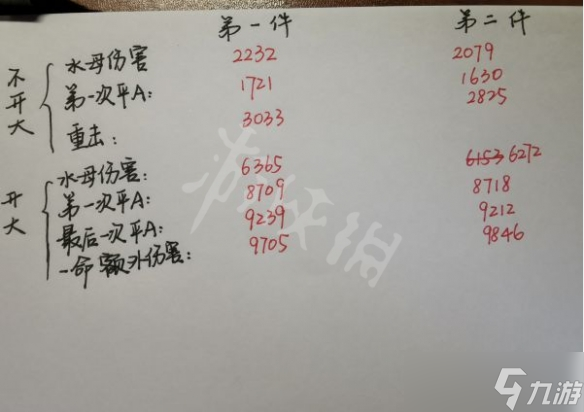 第一件 第二件
不开大
水母伤害 2232 2079
第一次平A: 1721 1630
重击: 3033 2825
开大
水母伤害: 6365 6153 6272
第一次平A: 8709 8718
最后一次平A: 9239 9212
一命额外伤害: 9705 9846
游侠网
九游